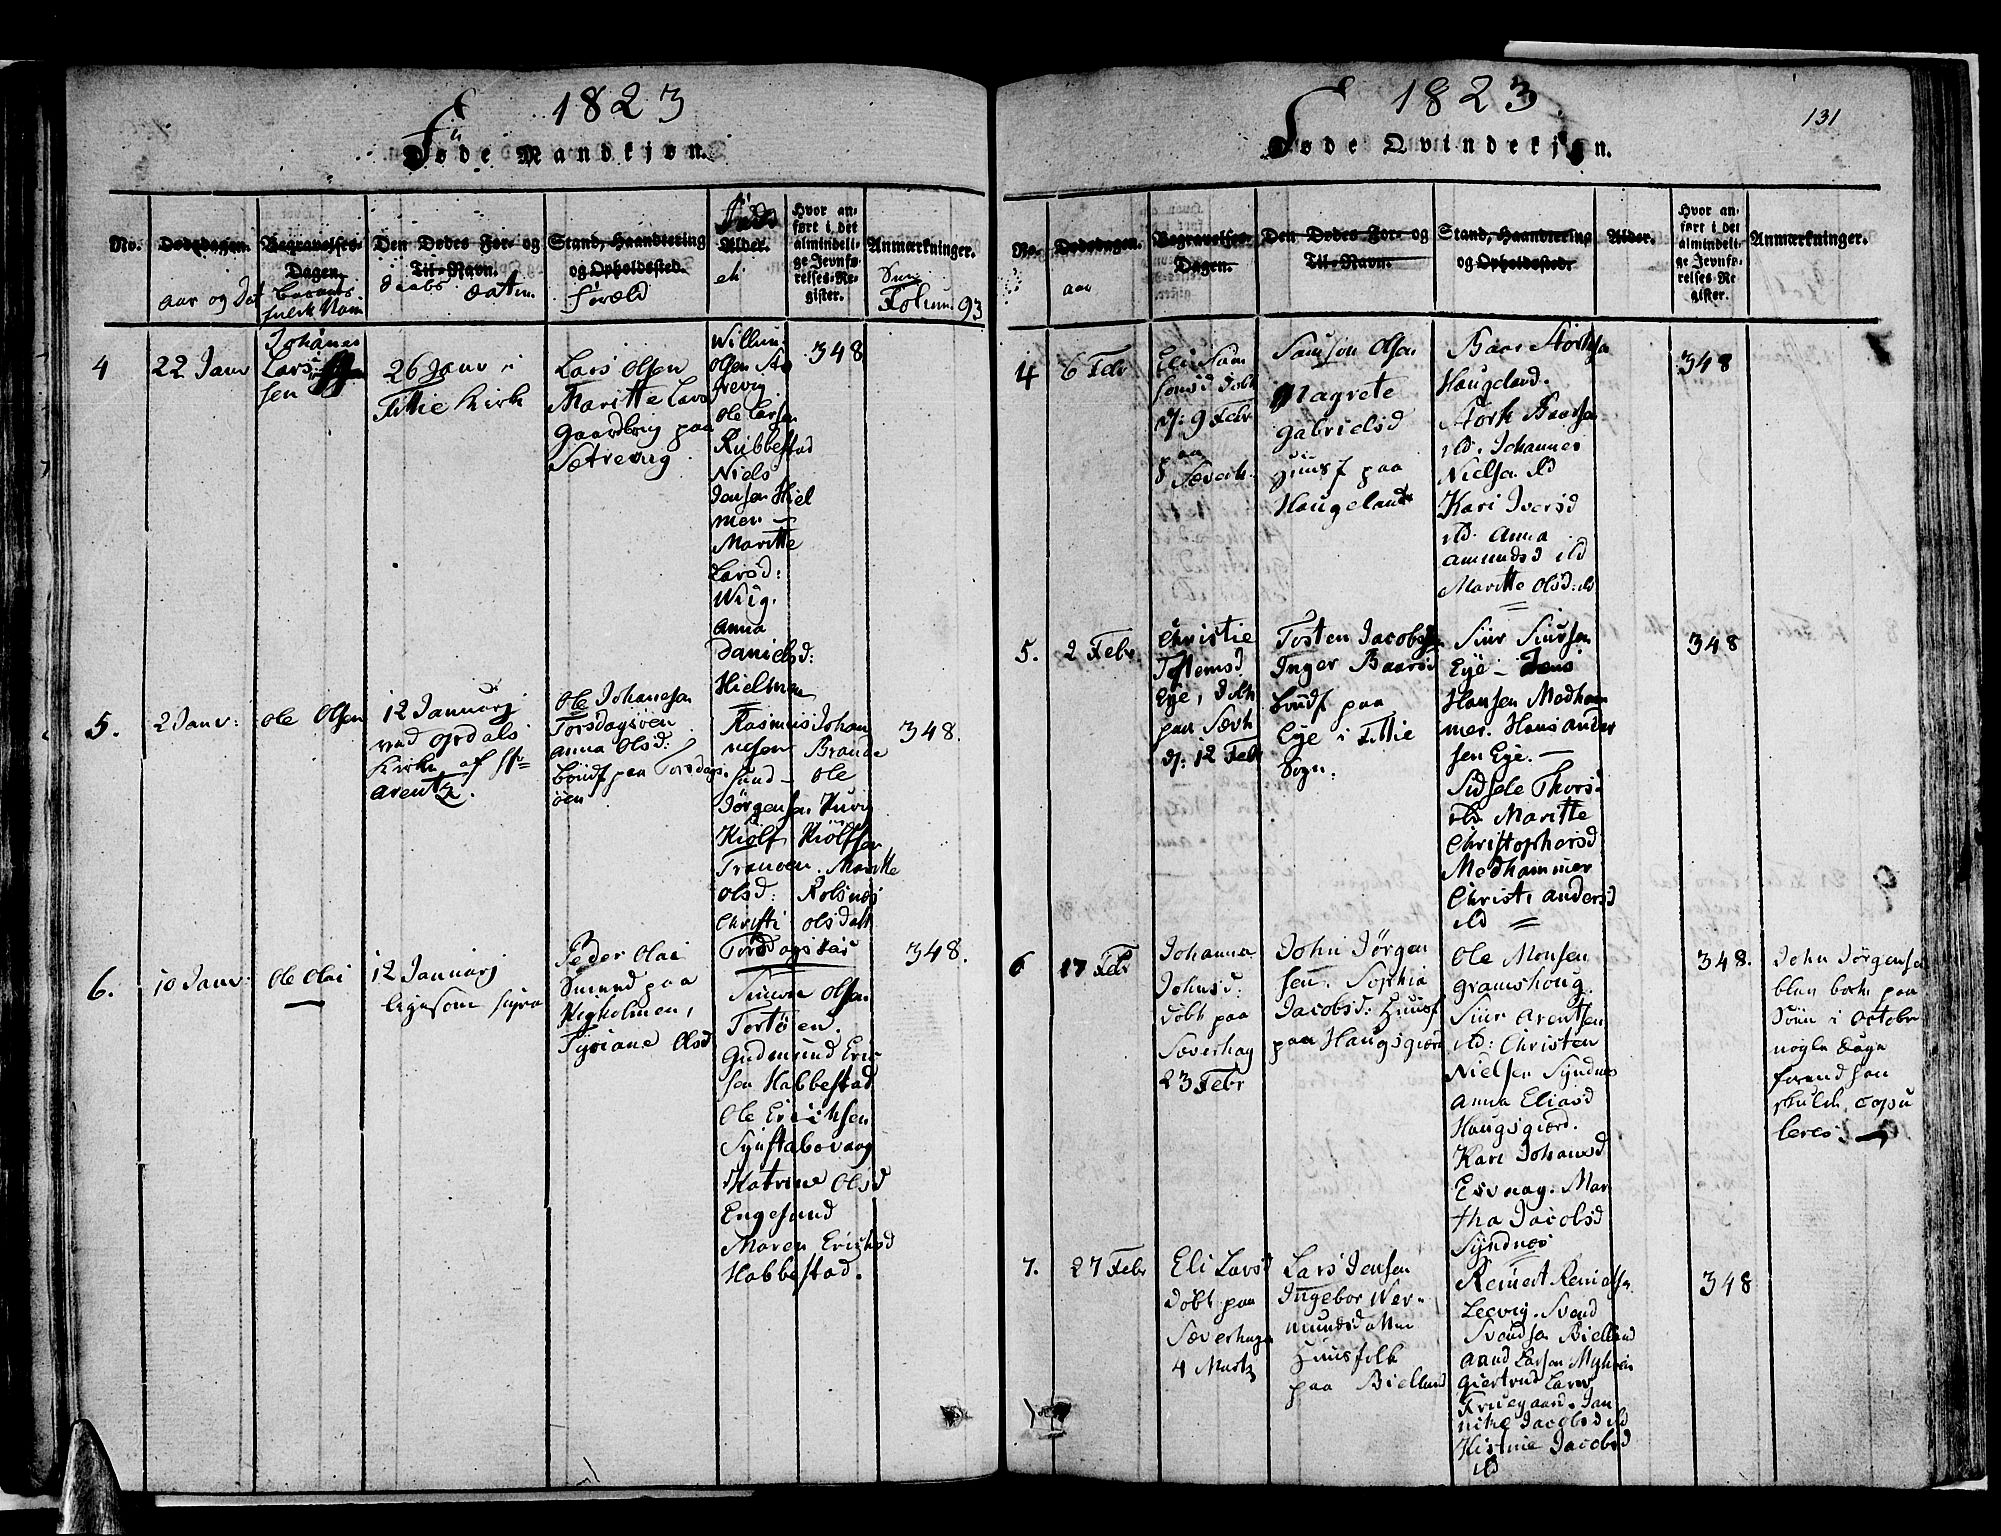 1823
Føde Mandkjøn.
No.
Dødsdagen.
aar og Dat
Begravelses-
Dagen.
barnets
fulde Navn
Den Dødes For- og
Til-Navn.
Daabs Datum.
Stand, Haandtering
og Opholdssted.
Foræld
Alder.
Hvor an-
ført i det
almindeli-
ge Jevnfø-
relses-Re-
gister.
Anmærkninger.
Folium 93
4
22 Janr
Johanes
Lars
sen
26 Janr i
Fittie Kirk
Lars Olsen
Maritte Lars
Gaardbrug paa
Sætrevig
Willum
Olsen Sæ
trevig
Ole Larsen
Rubbestad
Niels
Jensen Hiel
mer
Maritte
Larsd:
Wiig.
Anna
Danielsd:
Hielmen
348
5.
2 Janr:
Ole Olsen
12 Januarj
ved Ordals
Kirke af Hr
Arentz.
Ole Johanesen
Torsdagsøen
Anna Olsd:
böndf paa Torsdags
øen
Rasmus Johan
nesen Brande
sund - Ole
Jørgensen Kurvig
Kiölf Kiölfsen
Tranøen. Maritte
Olsd: Rolsnæs
Christi Olsdatt
Torsdagsøe
348.
6.
10 Janr
Ole Olai
12 Januarj
Peder Olai
paa
Hegholmen,
Olsd
Simon Olsen
Tortøen.
Gudmund Eric
sen Habbestad
Ole Erichsen
Synstabøvaag
Katrine Olsd
Engesund
Maren Erichsd
Habbestad.
348.
1823
131
Føde Qvindekjøn.
No.
Dødsdagen.
aar
Begravelses-
Dagen.
Den Dødes For- og
Til-Navn.
Stand, Haandtering
og Opholdssted.
Alder.
Hvor an-
ført i det
almindeli-
ge Jevnfø-
relses-Re-
gister.
Anmærkninger.
4
6 Febr
Eli Sam
sonsd Døbt
d: 9 Febr
paa
Samson Olsen
Magrete
Gabrielsd
Huusf paa
Haugeland
Baar Størksen
Haugeland.
Størk Baarsen
ild. Johannes
Nielsen ild
Kari Iversd
ild. Anna
Amundsd ild
Maritte Olsd: ild
348
5.
2 Febr.
Christie
Tostensd
Eye, Døbt
paa Sævh
d: 12 Febr
Tosten Jacobsen
Inger Baarsd
böndf paa
Eye i Fittie
Sogn.
Siur Siursen
Eye - Jens
Hansen Medham
mer. Hans Ander
sen Eye.
Sidsele Thorsd
ild Maritte
Christophersd
Medhammer
Christi Andersd
ild
348
6
17 Febr
Johanna
Johnsd:
Døbt paa
Sæverhag
23 Febr
John Jørgen
sen. Sophia
Jacobsd: Huusf
paa Haugsgiærd
Ole Monsen
Gramshoug.
Siur Arentsen
ild: Christen
Nielsen Syndnes
Anna Eliasd
Haugsgiærd.
Kari Johanesd
Esvaag. Mar
tha Jacobsd
Syndnæs
348.
John Jørgensen
blev borte paa
Söen i Octobr
nogle Dage
forend han
skulde Copu
leres.
7.
27 Febr
Eli Larsd
Døbt paa
Sæverhagen
4 Martz
Lars Jensen
Ingebor Wer-
mundsdatter
Huusfolk
paa Bielland
Reinert Reniertsen
Leevig. Svend
Svendsen Bielland
Aand Larsen Myhren
Giertrud Larsd
Kruegaard. Jan
niche Jacobsd ild
Kistine Jacobsd
ild
348